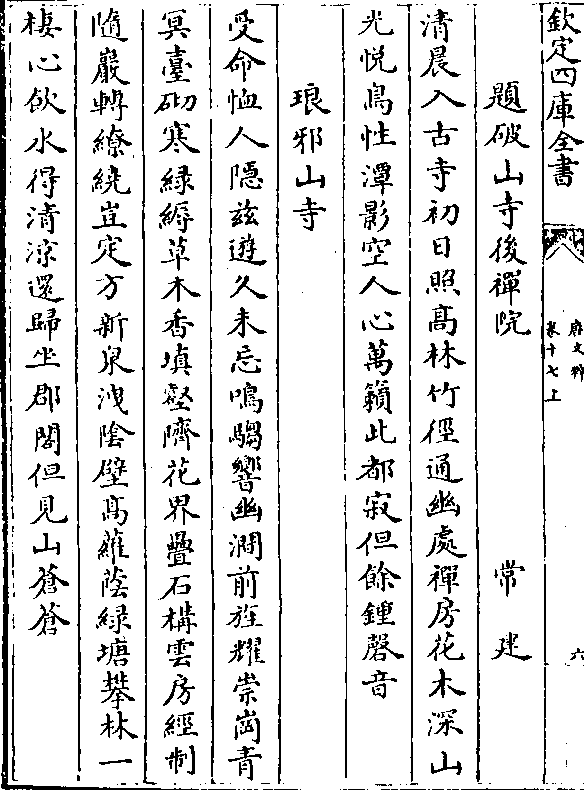 欽定四庫全書
唐文粹
卷十七上
六
題破山寺後禪院
常建
清晨入古寺初日照髙林竹徑通幽處禪房花木深山
光悦鳥性潭影空人心萬籟此都寂但餘鍾磬音
琅邪山寺
受命恤人隱兹遊久未忘鳴騶響幽澗前旌耀崇崗青
冥臺砌寒緑縟草木香填壑隮花界疊石構雲房經制
隨巖轉繚繞豈定方新泉洩陰壁髙蘿蔭緑塘攀林一
棲心飲水得清凉還歸坐郡閣但見山蒼蒼